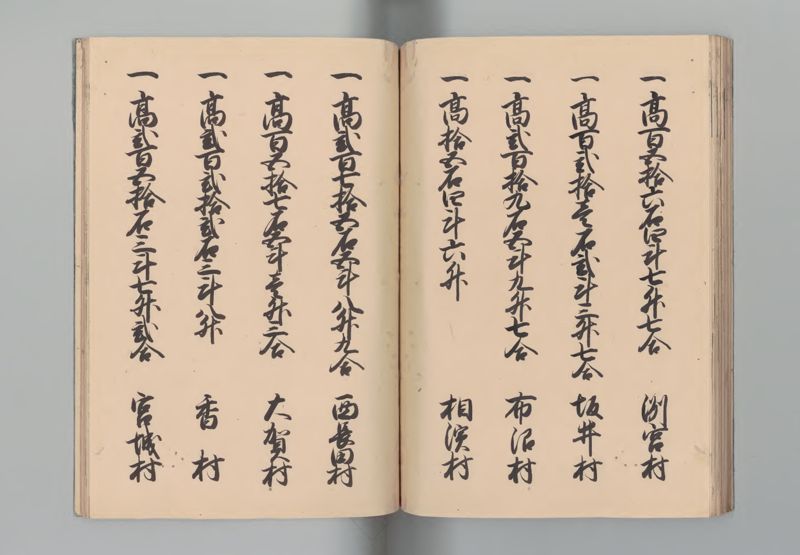 一 髙百五拾六石四斗七升七合 洲宮村
一 髙百弐拾壱石弐斗三升七合 坂井村
一 髙弐百拾九石五斗九升七合 布沼村
一 髙拾五石四斗六升 相浜村
一 髙弐百七拾五石五斗八升九合 西長田村
一 髙百五拾七石五斗壱升三合 大賀村
一 髙弐百弐拾弐石三斗八升 香村
一 髙弐百五拾石三斗七升弐合 宮城村